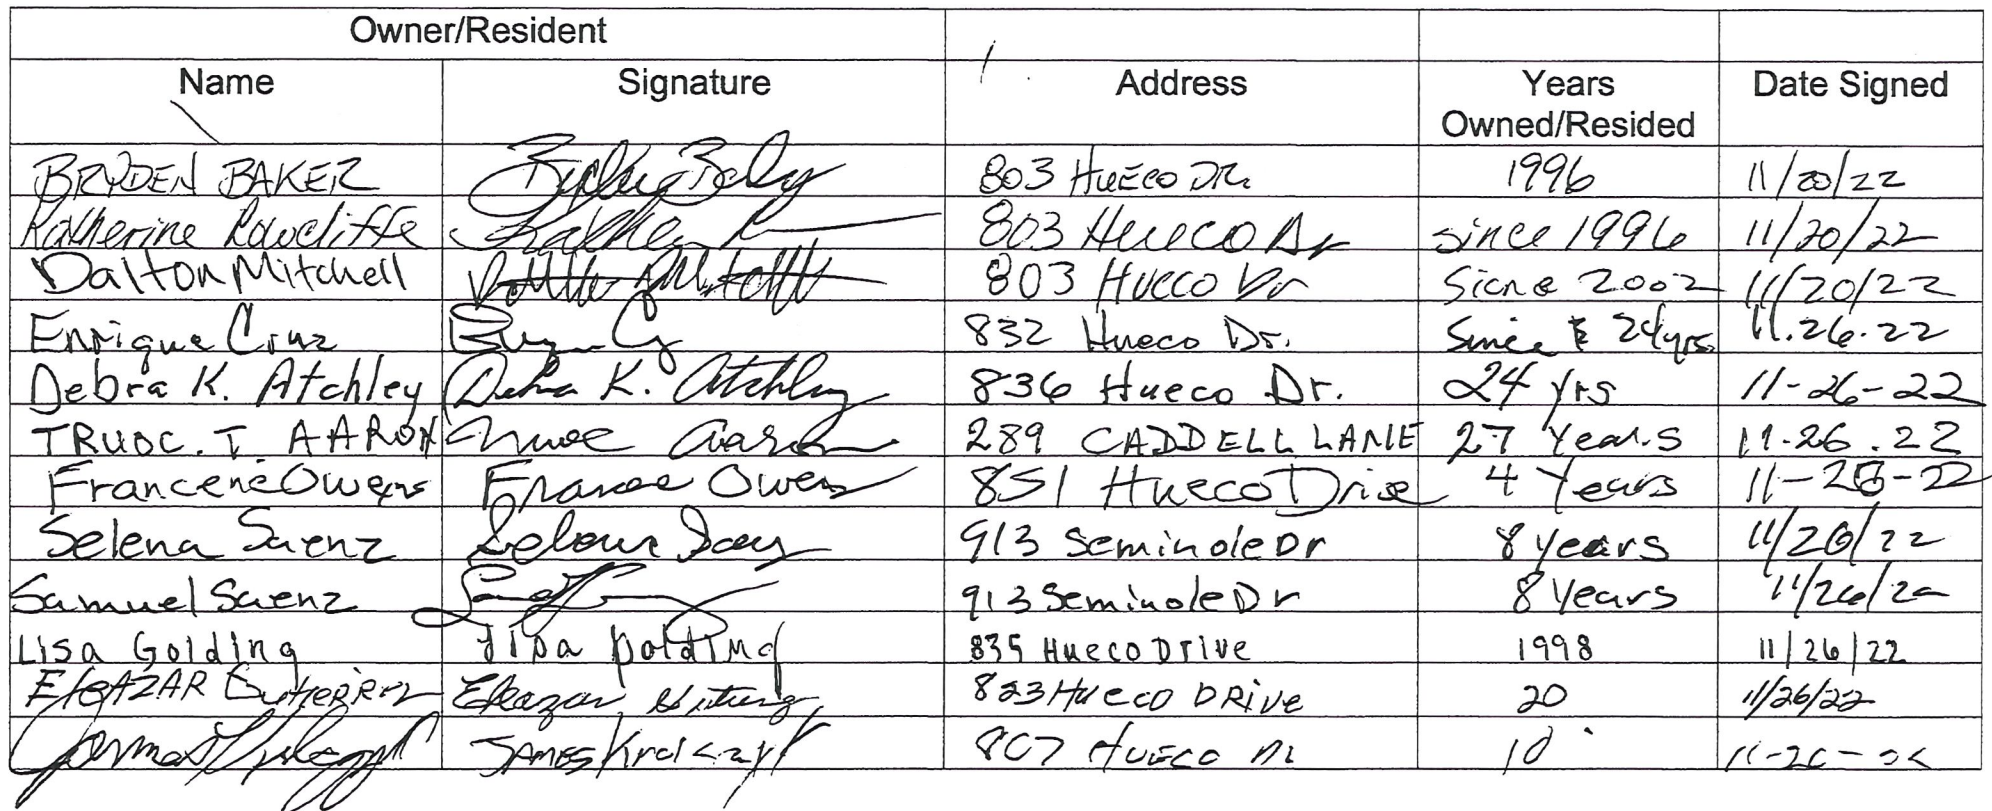 Owner/Resident
Name Signature Address Years Owned/Resided Date Signed
BRYDEN BAKER 803 HUECO DR. 1996 11/20/22
Katherine Rowcliffe 803 Hueco Dr since 1996 11/20/22
Dalton Mitchell 803 Hueco Dr Sicne 2002 11/20/22
Enrique Cruz 832 Hueco Dr. Since 24yrs. 11.26.22
Debra K. Atchley Debra K. Atchley 836 Hueco Dr. 24 yrs 11-26-22
TRUOC. T. AARON Aaron 289 CADDELL LANE 27 Years 11.26.22
Francene Owens Owens 851 Hueco Drive 4 Years 11-26-22
Selena Saenz 913 Seminole Dr 8 years 11/26/22
Samuel Saenz 913 Seminole Dr 8 Years 11/26/22
Lisa Golding Lisa Golding 835 Hueco Drive 1998 11/26/22
EleAZAR Gutierrez Eleazar 823 Hueco DRive 20 11/26/22
JAMES 807 HUECO DR 10